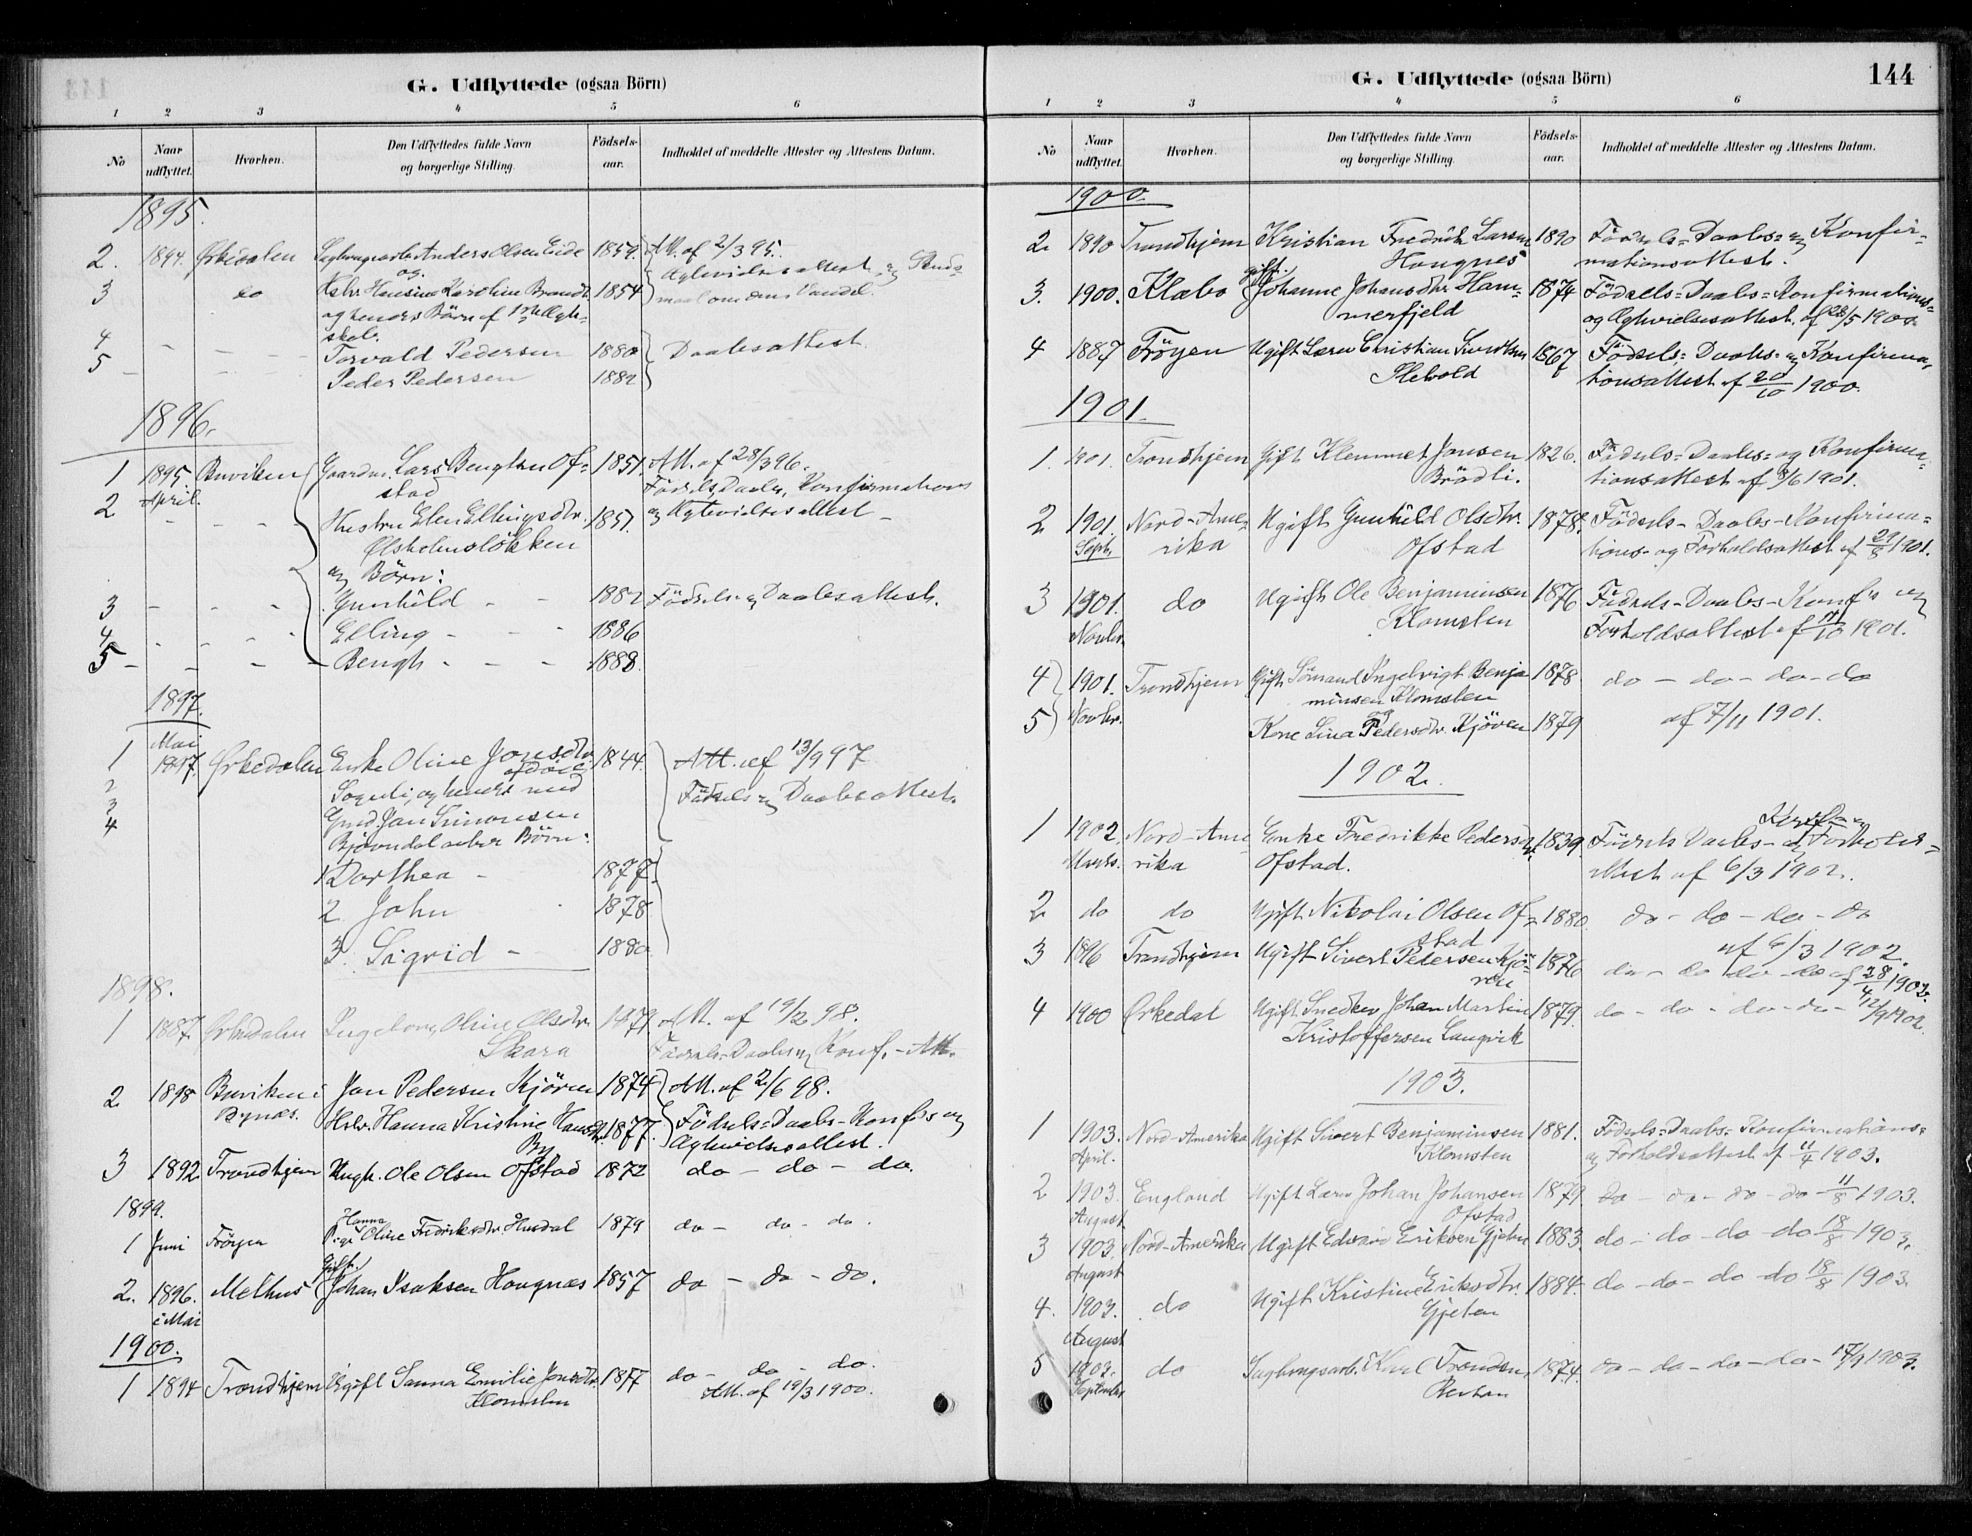 G. Udflyttede (ogsaa Börn)
1 2 3 4 5 6
No
Naar udflyttet.
Hvorhen.
Den Udflyttedes fulde Navn og borgerlige Stilling.
Födsels-aar.
Indholdet af meddelte Attester og Attestens Datum.
1895.
2. 1894. Orkedalen Anders Olsen Eide 1854. Att. af 2/3 95.
og Ægtevielsesattest og
3 do Karoline 1854
og hendes Börn af Ægte-
skab.
4 - - - Torvald Pedersen 1880 Daabsattest
5 - - - Peder Pedersen 1882
1896.
1 1895 Buviken Gaardm. Lars Bengtsen Of- 1851. Att. af 28/3 96.
April. stad Födsels, Daabs, Konfirmations
2 - - - Hustru Elen Ellingsdtr. 1851. og Ægtevielsesattest -
Ölsholmslökken
og Börn:
3 - - - Gunhild - - 1882 Födsels og Daabsattest.
4 - - - Elling - - 1886
5 - - - Bengt - - - 1888.
1897.
Mai
1 1897. Orkedalen Enke Oline Jonsdtr. 1844. Att. af 13/9 97
2 Sognli, og hendes med afdöde Födsels og Daabsattest.
3 Gmd. Jon Simonsen
4 Börn:
1 Dorthea - 1877.
2 John 1878
3. Sigrid - 1880
1898.
1 1887. Orkedalen Ingeborg Oline Olsdtr. 1879 Att. af 19/2 98.
Skara Födsels-Daabs og Konf.-Att.
2 1898 Buviken i Jon Pedersen Kjören 1874 Att. af 2/6 98.
Bynæs. Hstr. Hanna Kristine Hansdtr. 1877. Födsels-Daabs-Konfs og
By Ægtevielsesattest.
3 1892 Trondhjem Ungk. Ole Olsen Ofstad 1872 do - do - do.
1899.
1 Juni Fröyen Pige Hanna Oline Fredriksdtr. Husdal 1879 do - do - do.
Gift.
2. 1896. Melhus Johan Isaksen Hougnæs 1857 do - do - do.
i Mai
1900.
1 1894 Trondhjem Ugift Sanna Emilie Jonsdtr. 1877 do - do - do.
Klomsten Att. af 19/3 1900.
G. Udflyttede (ogsaa Börn)
144
1 2 3 4 5 6
No
Naar udflyttet.
Hvorhen.
Den Udflyttedes fulde Navn og borgerlige Stilling.
Födsels-aar.
Indholdet af meddelte Attester og Attestens Datum.
1900.
2. 1890 Trondhjem Kristian Fredrik Larsen 1890 Födsels-Daabs- og Konfir-
Hougnes mationsattest.
3. 1900. Klæbo gift. Johanne Johansdtr. Ham- 1874 Födsels-Daabs-Konfirmations-
merfjeld og Ægtevielsesattest. af 28/5 1900
4 1887 Fröyen Ugift Lærer Christian 1867 Födsels-Daabs- og Konfirma-
tionsattest af 20/10 1900.
1901.
1. 1901. Trondhjem Gift Klemmet Jonsen 1826. Födsels-Daabs- og Konfirma-
Brödli. tionsattest af 3/6 1901.
2 1901. Nord-Ame- Ugift Gunhild Olsdtr. 1878. Födsels-Daabs-Konfirma-
Septb. rika Ofstad tions- og Forholdsattest af 29/8 1901.
3 1901. do Ugift Ole Benjaminsen 1876 Födsels-Daabs-Konfs og
Novbr. Klomsten Forholdsattest af 11/10 1901.
4 1901. Trondhjem Gift Sömand Ingebrigt Benja- 1878 do - do - do - do
minsen Klomsten
5 Novbr. Kone Lina Pedersdtr. Kjören 1879 af 7/11 1901.
1902.
1 1902. Nord-Ame- Enke Fredrikke Pedersdtr. 1839. Födsels Daabs- Konf. og Forholds-
Marts. rika Ofstad. attest af 6/3 1902.
2 do do Ugift Nikolai Olsen Of- 1880 do - do - do - do
stad af 6/3 1902.
3 1896 Trondhjem Ugift Sivert Pedersen Kjö- 1876 do - do do - do af 28/4 1902.
ren
4 1900 Orkedal Ugift Snedker Johan Martin 1879. do - do - do - do - 12/9 1902.
Kristoffersen Langvik
1903.
1 1903. Nord-Amerika Ugift Sivert Benjaminsen 1881. Födsels-Daabs-Konfirmations-
April. Klomsten og Forholdsattest af 11/4 1903.
2 1903. England Ugift Lærer Johan Johansen 1879 do - do - do - do - 11/8 1903.
August Ofstad
3 1903. Nord-Amerika Ugift Edvard Eriksen Gjeten 1883. do - do - do do 18/8 1903.
August
4. 1903. do Ugift Kristine Eriksdtr. 1884. do - do - do do 18/8 1903.
August Gjeten
5 1903. do Sagbrugsarb. Karl Trondsen 1874. do - do - do - do - 17/9 1903.
September